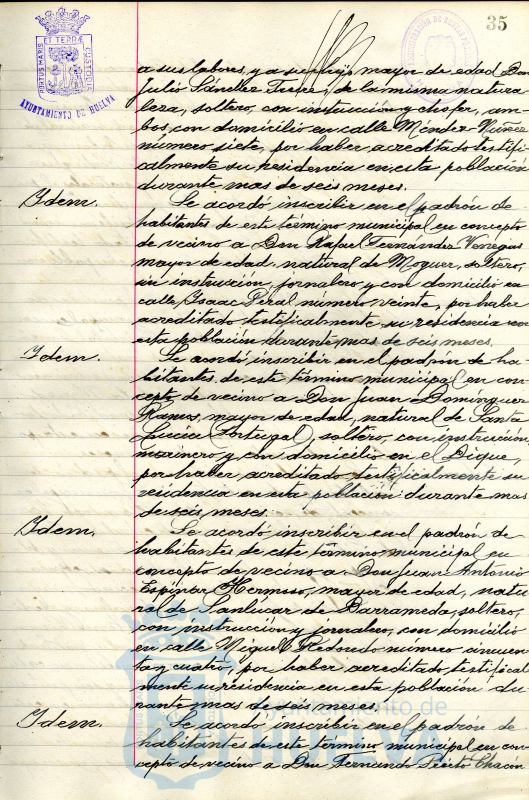 35
PORTUS MARIS ET TERRÆ CUSTODIA
AYUNTAMIENTO DE HUELVA
a sus labores, y a su hijo mayor de edad Don
Julio Sánchez de la misma natura-
leza, soltero, con instrucción y chofer, am-
bos, con domicilio en calle Méndez Núñez
número siete, por haber acreditado testifi-
calmente su residencia en esta población
durante mas de seis meses.
Idem. Se acordó inscribir en el padrón de
habitantes de este término municipal en concepto
de vecino a Don Rafael Fernández Venegas
mayor de edad, natural de Moguer, soltero,
sin instrucción, jornalero y con domicilio en
calle Isaac Peral número veinte, por haber
acreditado testificalmente su residencia en
esta población durante mas de seis meses.
Idem. Se acordó inscribir en el padrón de ha-
bitantes de este término municipal en con-
cepto de vecino a Don Juan Domínguez
Ramos, mayor de edad, natural de Santa
Lucía (Portugal), soltero, con instrucción,
marinero y con domicilio en el Dique,
por haber acreditado testificalmente su
residencia en esta población durante mas
de seis meses.
Idem. Se acordó inscribir en el padrón de
habitantes de este término municipal en
concepto de vecino a Don Juan Antonio
Espinar Hermoso, mayor de edad, natu-
ral de Sanlucar de Barrameda, soltero,
con instrucción y jornalero, con domicilio
en calle Miguel Redondo número cincuen-
ta y cuatro, por haber acreditado testifical-
mente su residencia en esta población du-
rante mas de seis meses.
Idem. Se acordó inscribir en el padrón de
habitantes de este término municipal en con-
cepto de vecino a Don Fernando Chacón
Ayuntamiento de
HUELVA